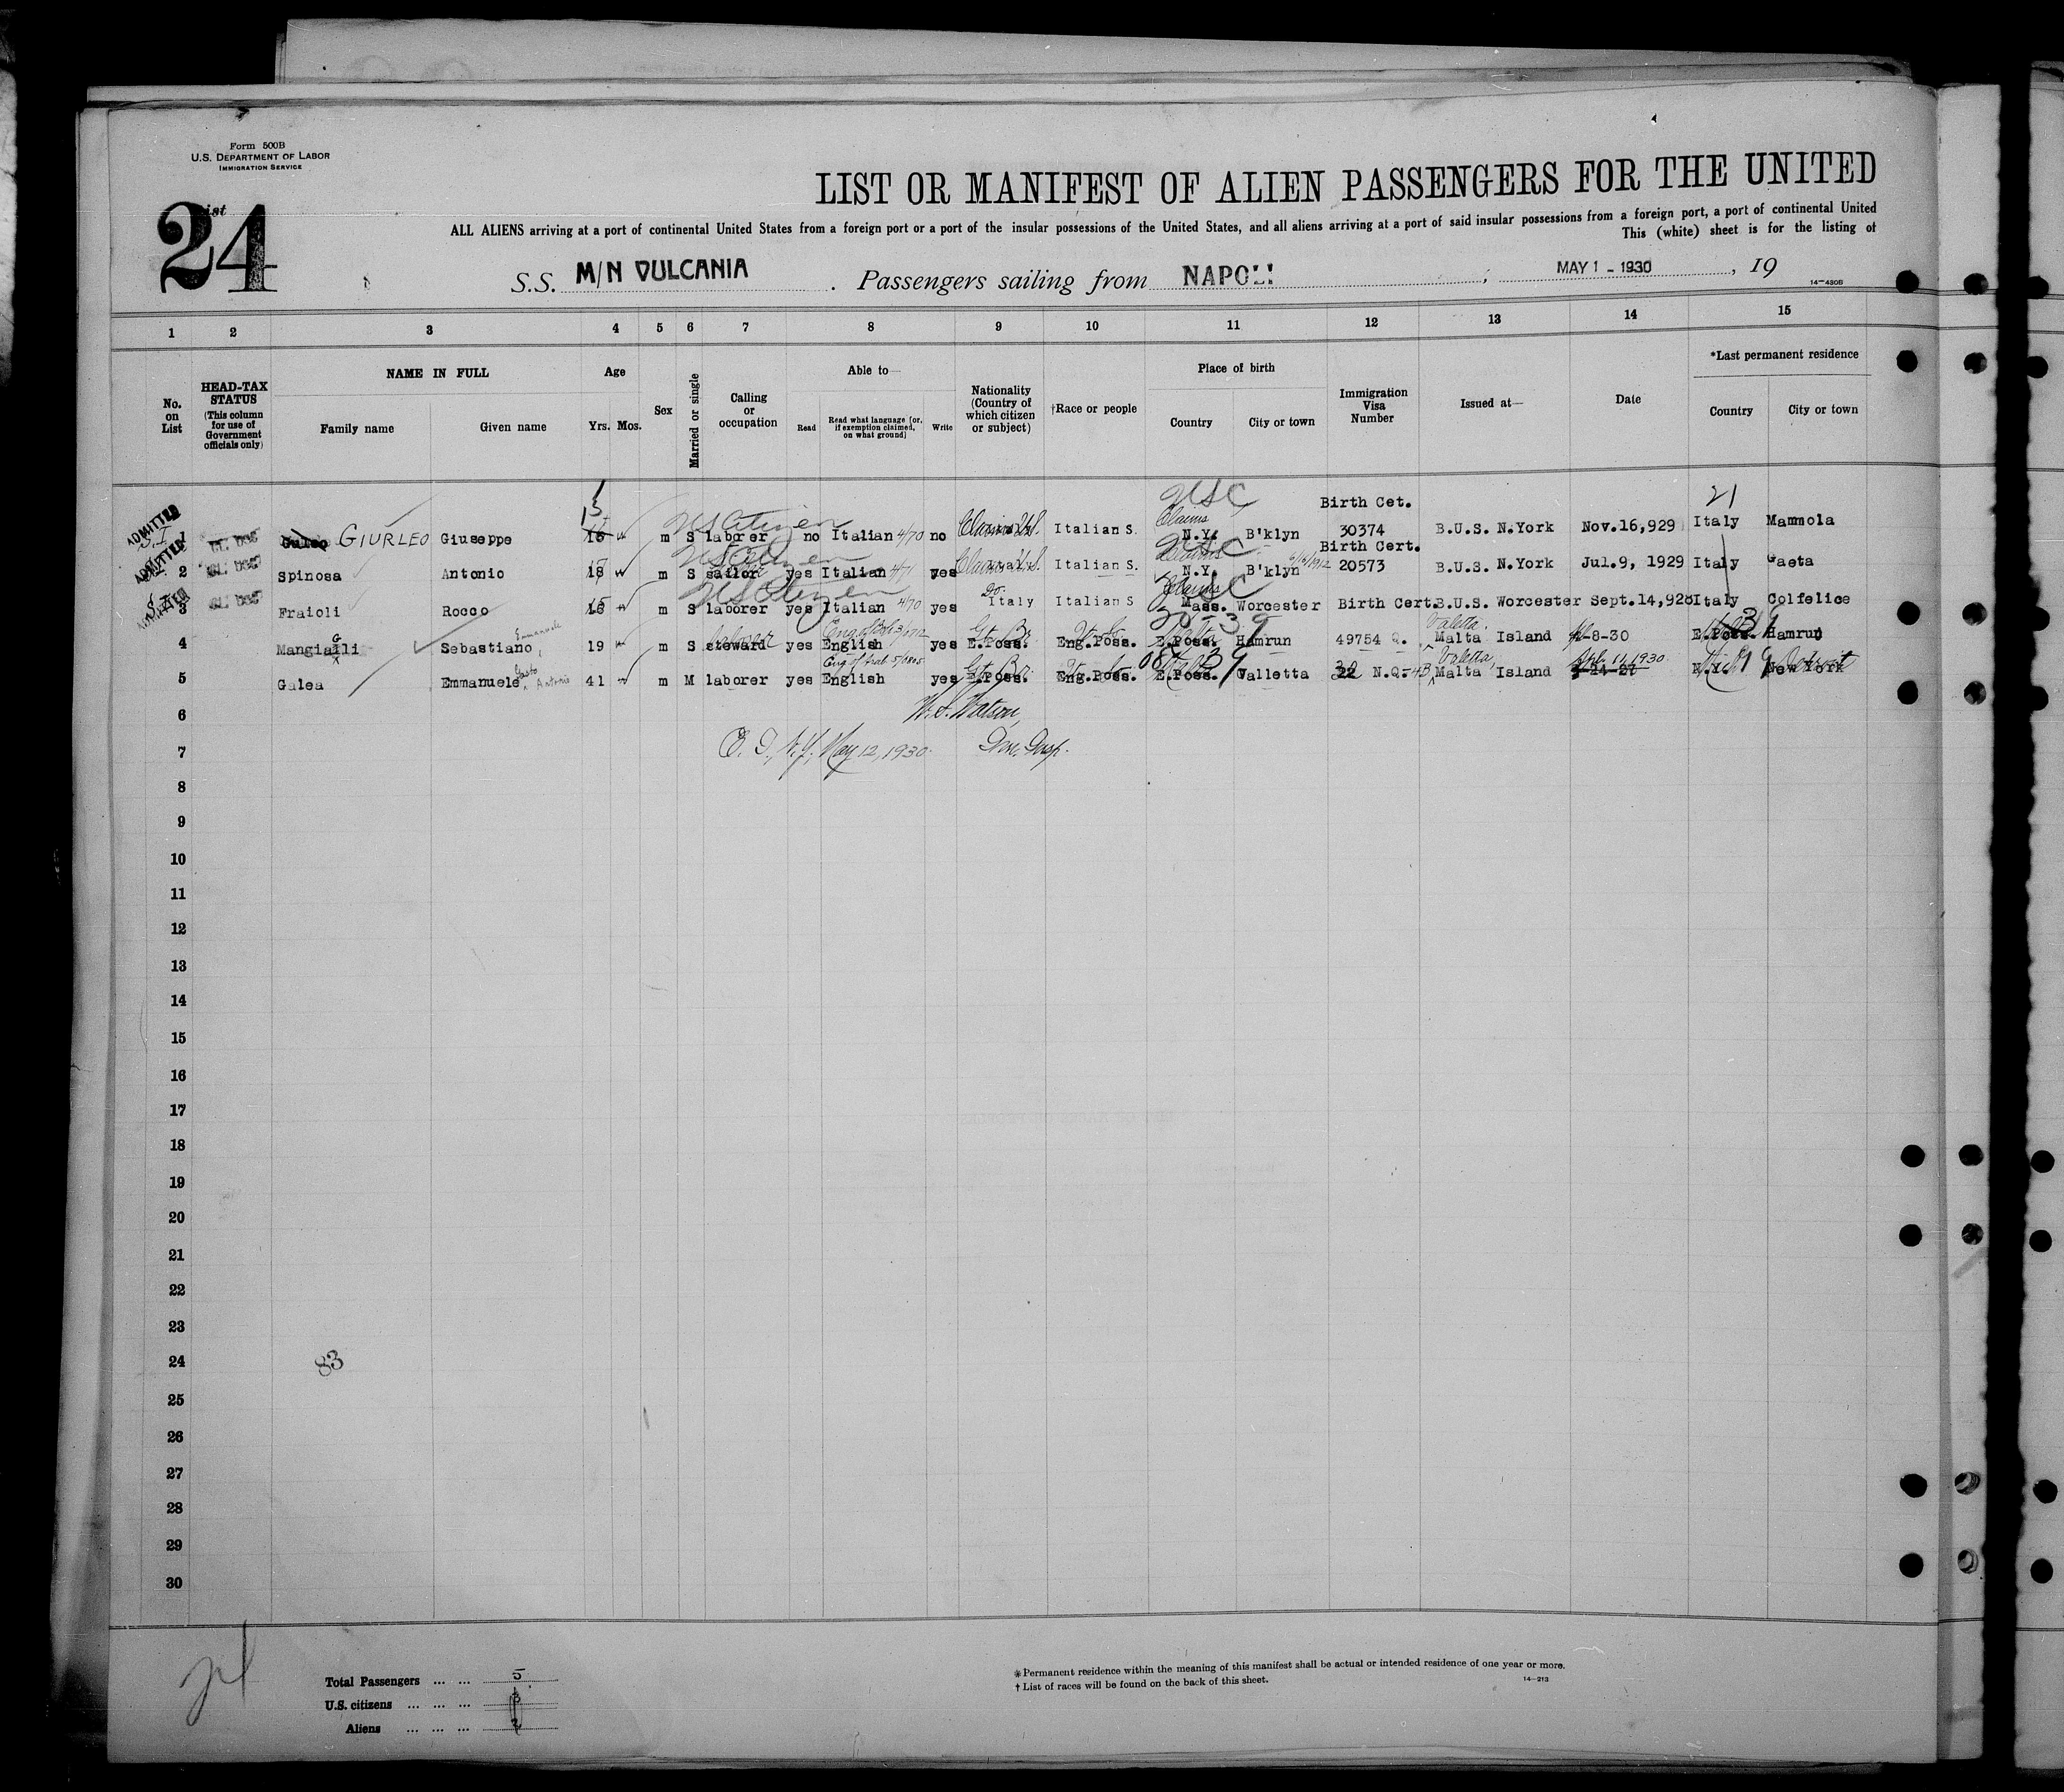 Form 500B
U.S. DEPARTMENT OF LABOR
IMMIGRATION SERVICE
List
24
LIST OR MANIFEST OF ALIEN PASSENGERS FOR THE UNITED
ALL ALIENS arriving at a port of continental United States from a foreign port or a port of the insular possessions of the United States, and all aliens arriving at a port of said insular possessions from a foreign port, a port of continental United
This (white) sheet is for the listing of
S.S. M/N VULCANIA . Passengers sailing from NAPOLI ; MAY 1 - 1930 , 19
14—430B
1 2 3 4 5 6 7 8 9 10 11 12 13 14 15
No. on List
HEAD-TAX STATUS (This column for use of Government officials only)
NAME IN FULL
Family name
Given name
Age
Yrs. Mos.
Sex
Married or single
Calling or occupation
Able to—
Read
Read what language [or, if exemption claimed, on what ground]
Write
Nationality (Country of which citizen or subject)
†Race or people
Place of birth
Country
City or town
Immigration Visa Number
Issued at—
Date
*Last permanent residence
Country
City or town
USC Birth Cet. 21
ADMITTED 1 GIURLEO Giuseppe 15 16 m S laborer US Citizen no Italian 4/70 no Claims U.S. Italian S. Claims N.Y. B'klyn 30374 B.U.S. N.York Nov.16,929 Italy Mammola
USC Birth Cert.
ADMITTED 2 Spinosa Antonio 18 m S sailor US Citizen yes Italian yes Claims U.S. Italian S. Claims N.Y. B'klyn 20573 B.U.S. N.York Jul.9, 1929 Italy Gaeta
USC
ADMITTED 3 Fraioli Rocco 16 m S laborer US Citizen yes Italian 4/70 yes Do. Italy Italian S Claims Mass. Worcester Birth Cert. B.U.S. Worcester Sept.14,928 Italy Colfelice
4 Mangialli G Sebastiano Emmanuele 19 m S steward laborer yes English yes E.Poss. Gt. Br. Eng.Poss. E.Poss. Malta Hamrun 49754 Q. Valetta, Malta Island 4-8-30 E.Poss. Hamrun
5 Galea Emmanuele Antonio 41 m M laborer yes English yes E.Poss. Gt. Br. Eng.Poss. E.Poss. Valletta N.Q. Valetta, Malta Island Apl. 11, 1930 N.Y. New York Detroit
6 W. S. Watson,
7 May 12, 1930. Insp.
8
9
10
11
12
13
14
15
16
17
18
19
20
21
22
23
24 83
25
26
27
28
29
30
Total Passengers ... ... 5
U.S. citizens ... ... ... 3
Aliens ... ... ... 2
*Permanent residence within the meaning of this manifest shall be actual or intended residence of one year or more.
† List of races will be found on the back of this sheet.
14—213